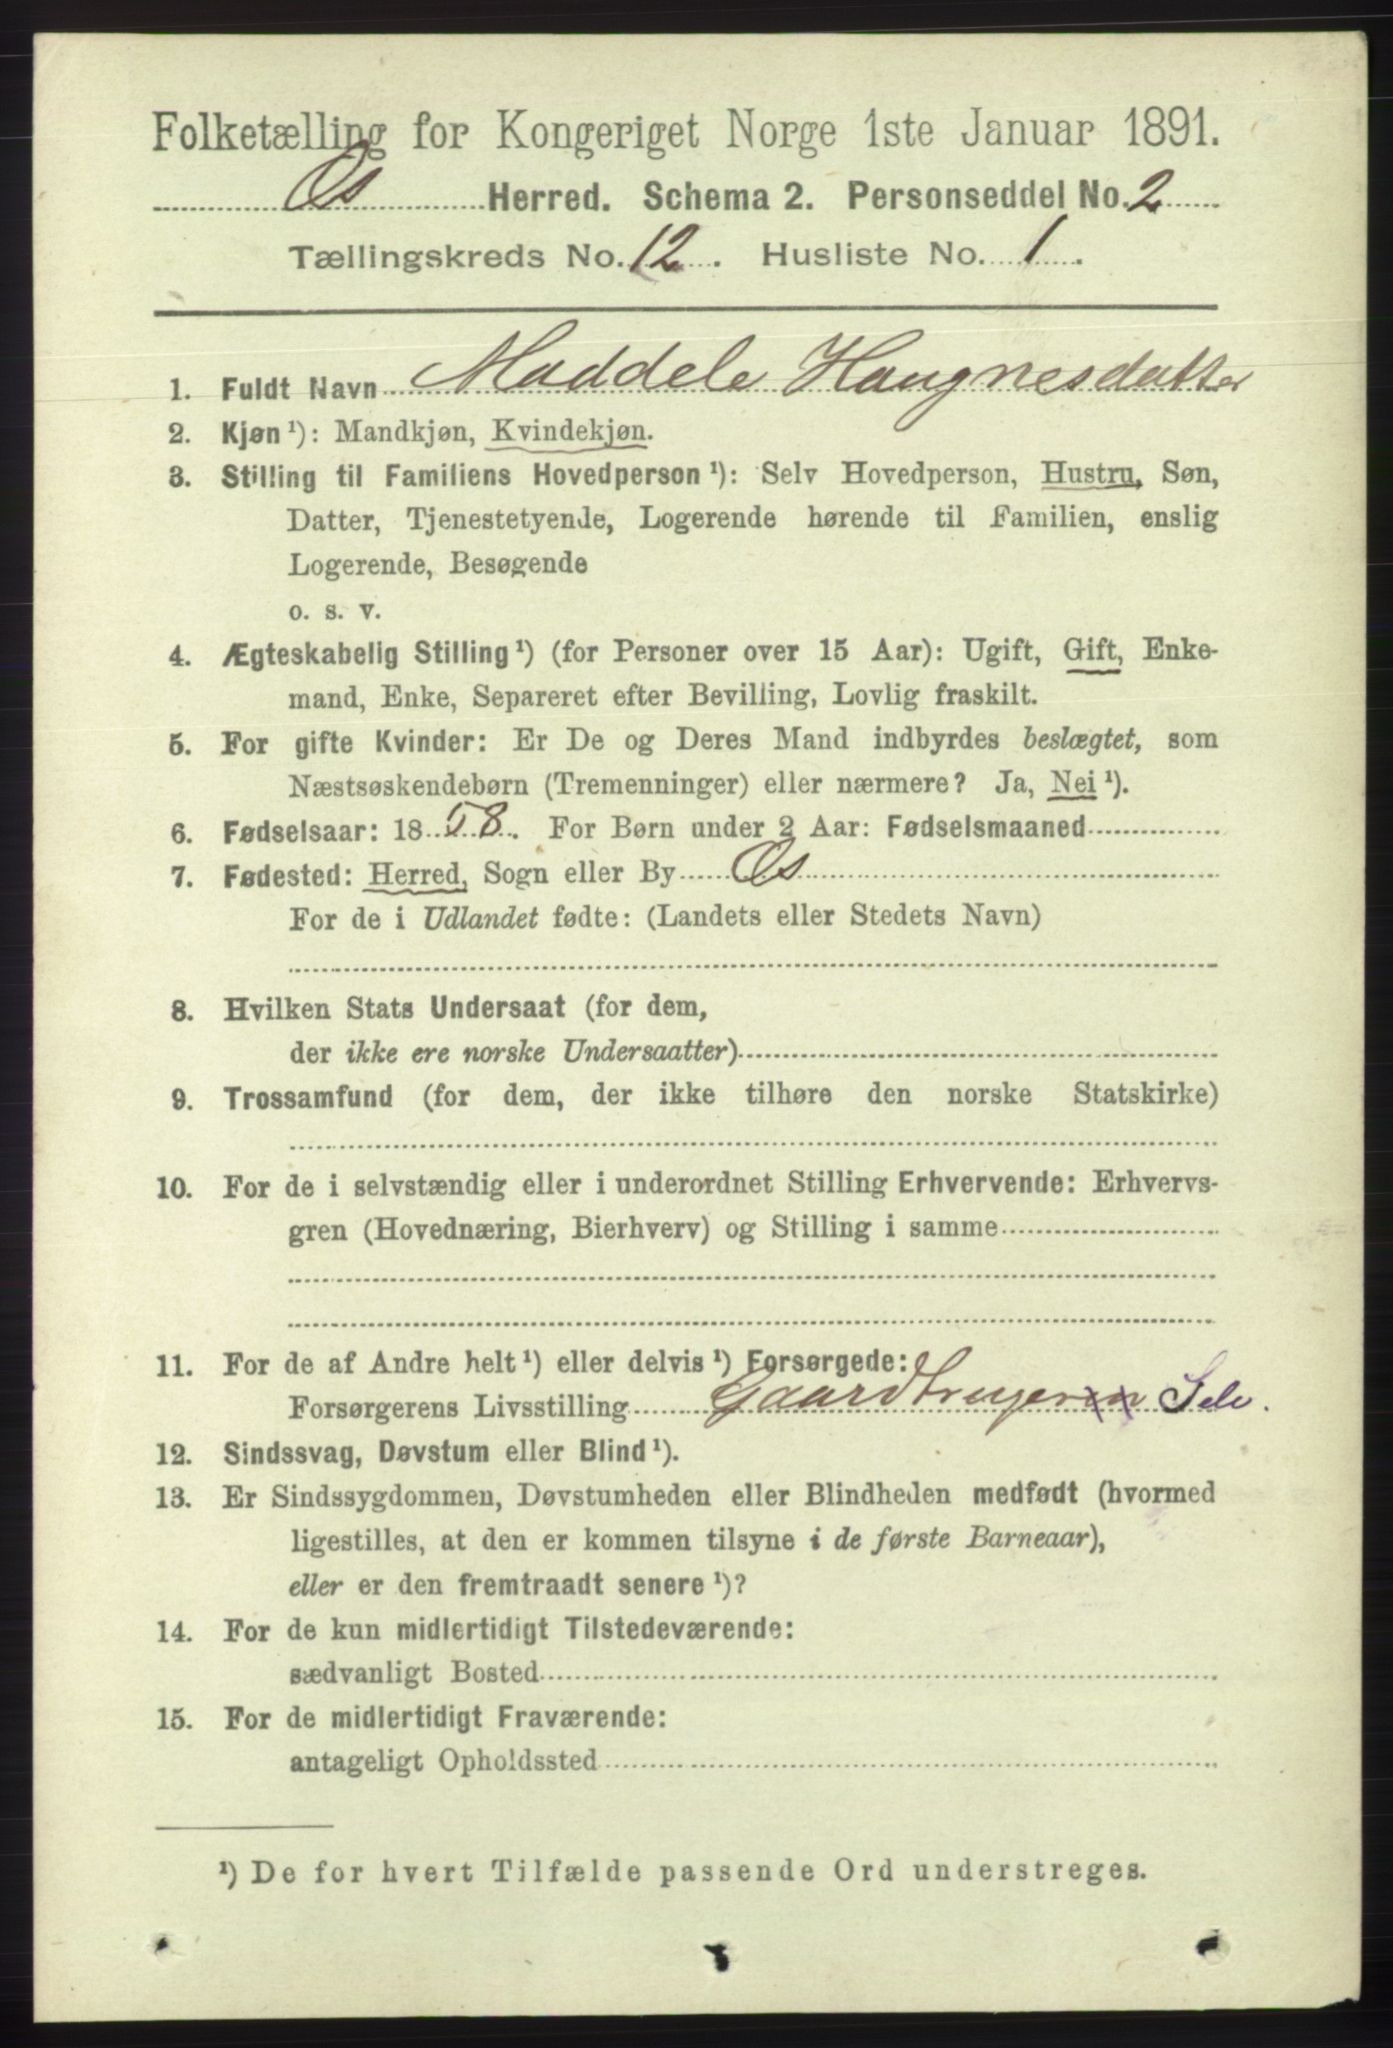 Folketælling for Kongeriget Norge 1ste Januar 1891.
Os Herred. Schema 2. Personseddel No. 2
Tællingskreds No. 12. Husliste No. 1.
1. Fuldt Navn Maddele Haugnesdatter
2. Kjøn ¹): Mandkjøn, Kvindekjøn.
3. Stilling til Familiens Hovedperson ¹): Selv Hovedperson, Hustru, Søn,
Datter, Tjenestetyende, Logerende hørende til Familien, enslig
Logerende, Besøgende
o. s. v.
4. Ægteskabelig Stilling ¹) (for Personer over 15 Aar): Ugift, Gift, Enke-
mand, Enke, Separeret efter Bevilling, Lovlig fraskilt.
5. For gifte Kvinder: Er De og Deres Mand indbyrdes beslægtet, som
Næstsøskendebørn (Tremenninger) eller nærmere? Ja, Nei ¹).
6. Fødselsaar: 18 58. For Børn under 2 Aar: Fødselsmaaned
7. Fødested: Herred, Sogn eller By Os
For de i Udlandet fødte: (Landets eller Stedets Navn)
8. Hvilken Stats Undersaat (for dem,
der ikke ere norske Undersaatter)
9. Trossamfund (for dem, der ikke tilhøre den norske Statskirke)
10. For de i selvstændig eller i underordnet Stilling Erhvervende: Erhvervs-
gren (Hovednæring, Bierhverv) og Stilling i samme
11. For de af Andre helt ¹) eller delvis ¹) Forsørgede:
Forsørgerens Livsstilling Gaardbruger Sele.
12. Sindssvag, Døvstum eller Blind ¹).
13. Er Sindssygdommen, Døvstumheden eller Blindheden medfødt (hvormed
ligestilles, at den er kommen tilsyne i de første Barneaar),
eller er den fremtraadt senere ¹)?
14. For de kun midlertidigt Tilstedeværende:
sædvanligt Bosted
15. For de midlertidigt Fraværende:
antageligt Opholdssted
¹) De for hvert Tilfælde passende Ord understreges.